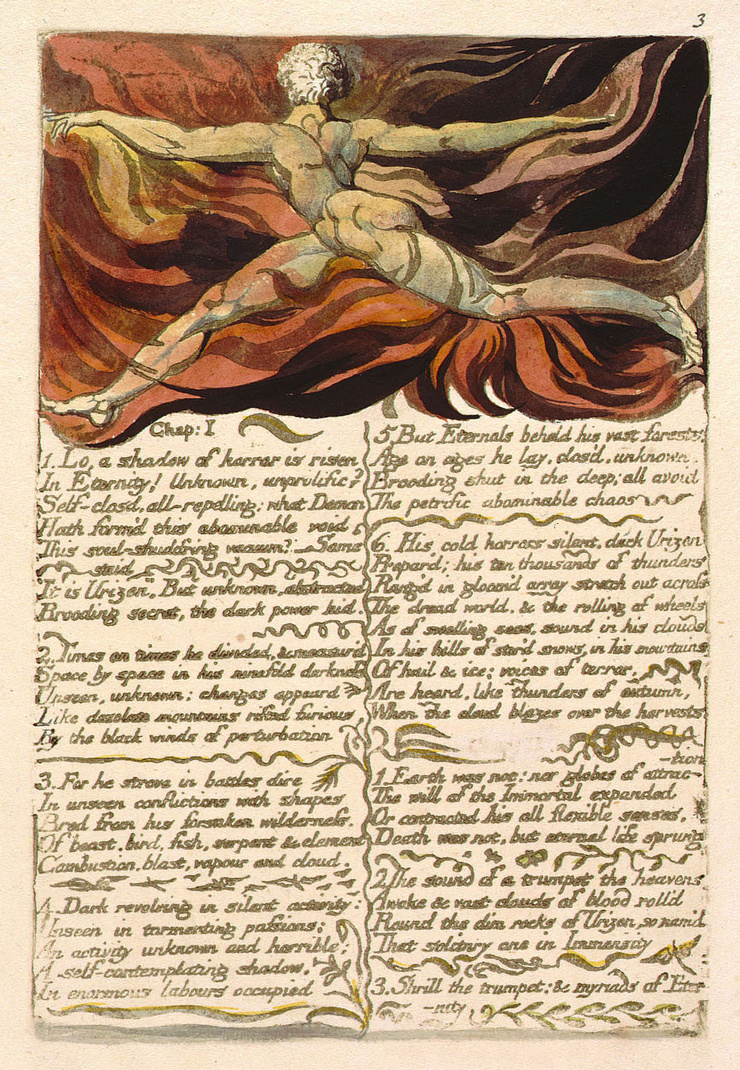 3
Chap: I
1. Lo, a shadow of horror is risen
In Eternity! Unknown, unprolific?
Self-closd, all-repelling: what Demon
Hath form'd this abominable void
This soul-shudd'ring vacuum? Some
said
It is Urizen", But unknown, abstracted
Brooding secret, the dark power hid.
2. Times on times he divided, & measur'd
Space by space in his ninefold darkness
Unseen, unknown: changes appeard
Like desolate mountains rifted furious
By the black winds of perturbation
3. For he strove in battles dire
In unseen conflictions with shapes
Bred from his forsaken wilderness,
Of beast, bird, fish, serpent & element
Combustion, blast, vapour and cloud.
4. Dark revolving in silent activity:
Unseen in tormenting passions;
An activity unknown and horrible;
A self-contemplating shadow,
In enormous labours occupied
5. But Eternals beheld his vast forests
Age on ages he lay, clos'd, unknown,
Brooding shut in the deep; all avoid
The petrific abominable chaos
6. His cold horrors silent, dark Urizen
Prepar'd; his ten thousands of thunders
Rang'd in gloom'd array stretch out across
The dread world, & the rolling of wheels
As of swelling seas, sound in his clouds
In his hills of stor'd snows, in his mountains
Of hail & ice; voices of terror,
Are heard, like thunders of autumn,
When the cloud blazes over the harvests
1. Earth was not: nor globes of attrac-
-tion
The will of the Immortal expanded
Or contracted his all flexible senses.
Death was not, but eternal life sprung
2. The sound of a trumpet the heavens
Awoke & vast clouds of blood roll'd
Round the dim rocks of Urizen, so nam'd
That solitary one in Immensity
3. Shrill the trumpet: & myriads of Eter-
-nity